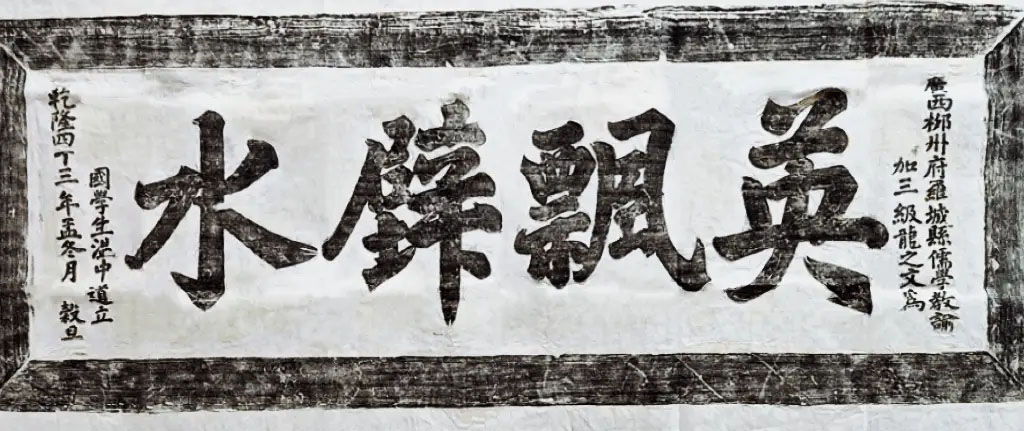 廣西柳州府羅城縣儒學教諭
加三級龍之文爲
英飄璧水
國學生洗中道立
乾隆四丁三年孟冬月 穀旦